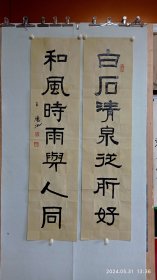 白石清泉從所好
和風時雨與人同
2024.05.31 13:36